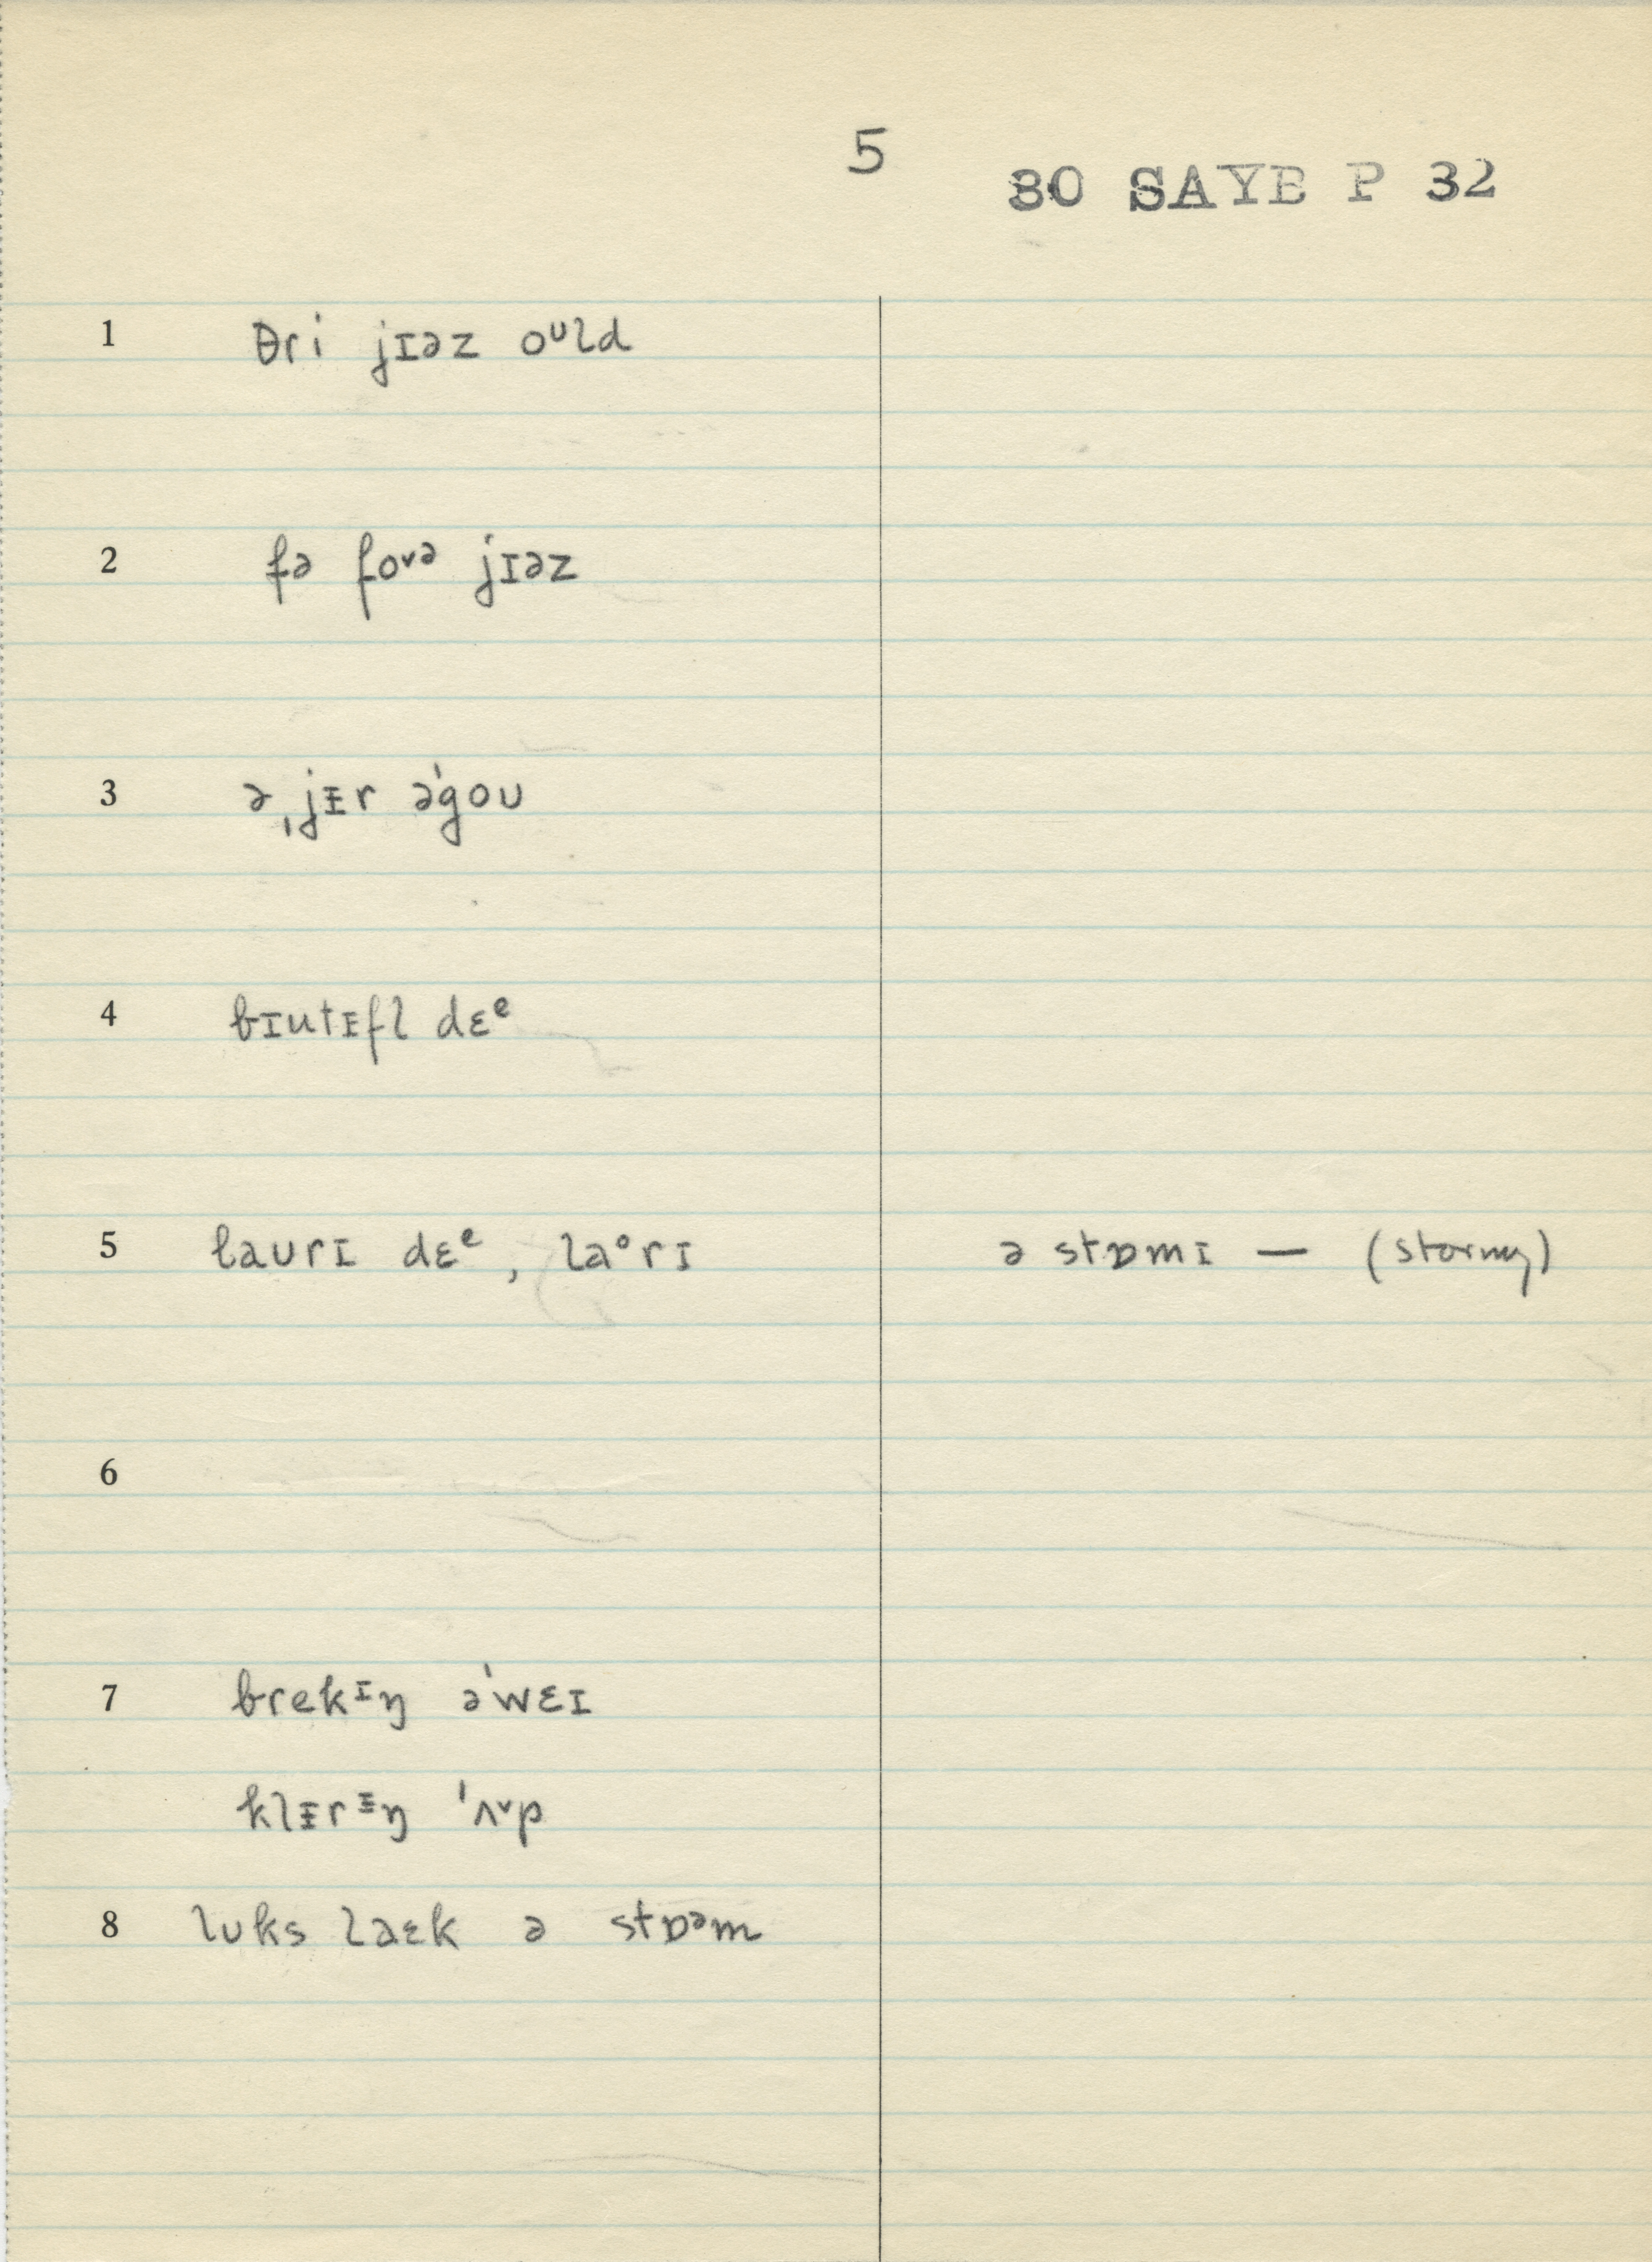 5
80 SAYB P 32
1 θri jɪəz oᶸld
2 fə foᵛᵊ jɪəz
3 ə ˌjᵻr əˈgoʊ
4 bɪutᵻfl dɛᵉ
5 laʊrɪ dɛᵉ, laᵒrɪ ə stɒmɪ — (stormy)
6
7 brekᶦŋ əˈwɛɪ
klᵻrᵻŋ ˈʌᵛp
8 lʊks laɛk ə stɒᵊm